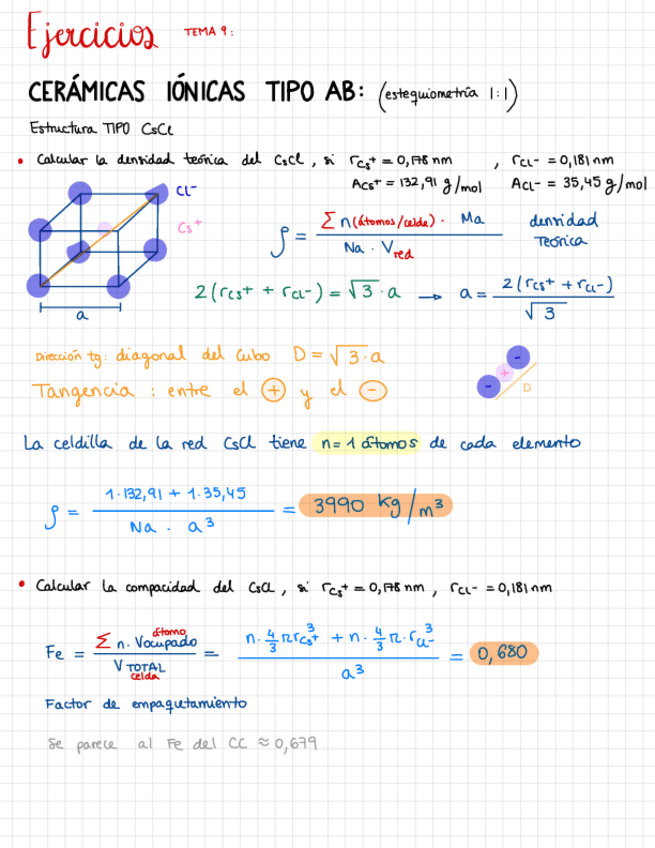 Ejercicios TEMA 9:
CERÁMICAS IÓNICAS TIPO AB: (estequiometría 1:1)
Estructura TIPO CsCl
• Calcular la densidad teórica del CsCl, si rCs+ = 0,178 nm, rCl- = 0,181 nm
ACs+ = 132,91 g/mol ACl- = 35,45 g/mol
Cl-
Cs+
a
ρ = Σ n(átomos/celda) · Ma / Na · Vred
densidad
teórica
2(rCs+ + rCl-) = √3 · a → a = 2(rCs+ + rCl-) / √3
Dirección tg: diagonal del cubo D = √3 · a
Tangencia: entre el + y el -
- + - D
La celdilla de la red CsCl tiene n= 1 átomos de cada elemento
ρ = 1·132,91 + 1·35,45 / Na · a³ = 3990 kg/m³
• Calcular la compacidad del CsCl, si rCs+ = 0,178 nm, rCl- = 0,181 nm
Fe = Σ n. Vocupado átomo / V TOTAL celda = n· 4/3 π rCs+³ + n· 4/3 π · rCl-³ / a³ = 0,680
Factor de empaquetamiento
Se parece al Fe del CC ≈ 0,679